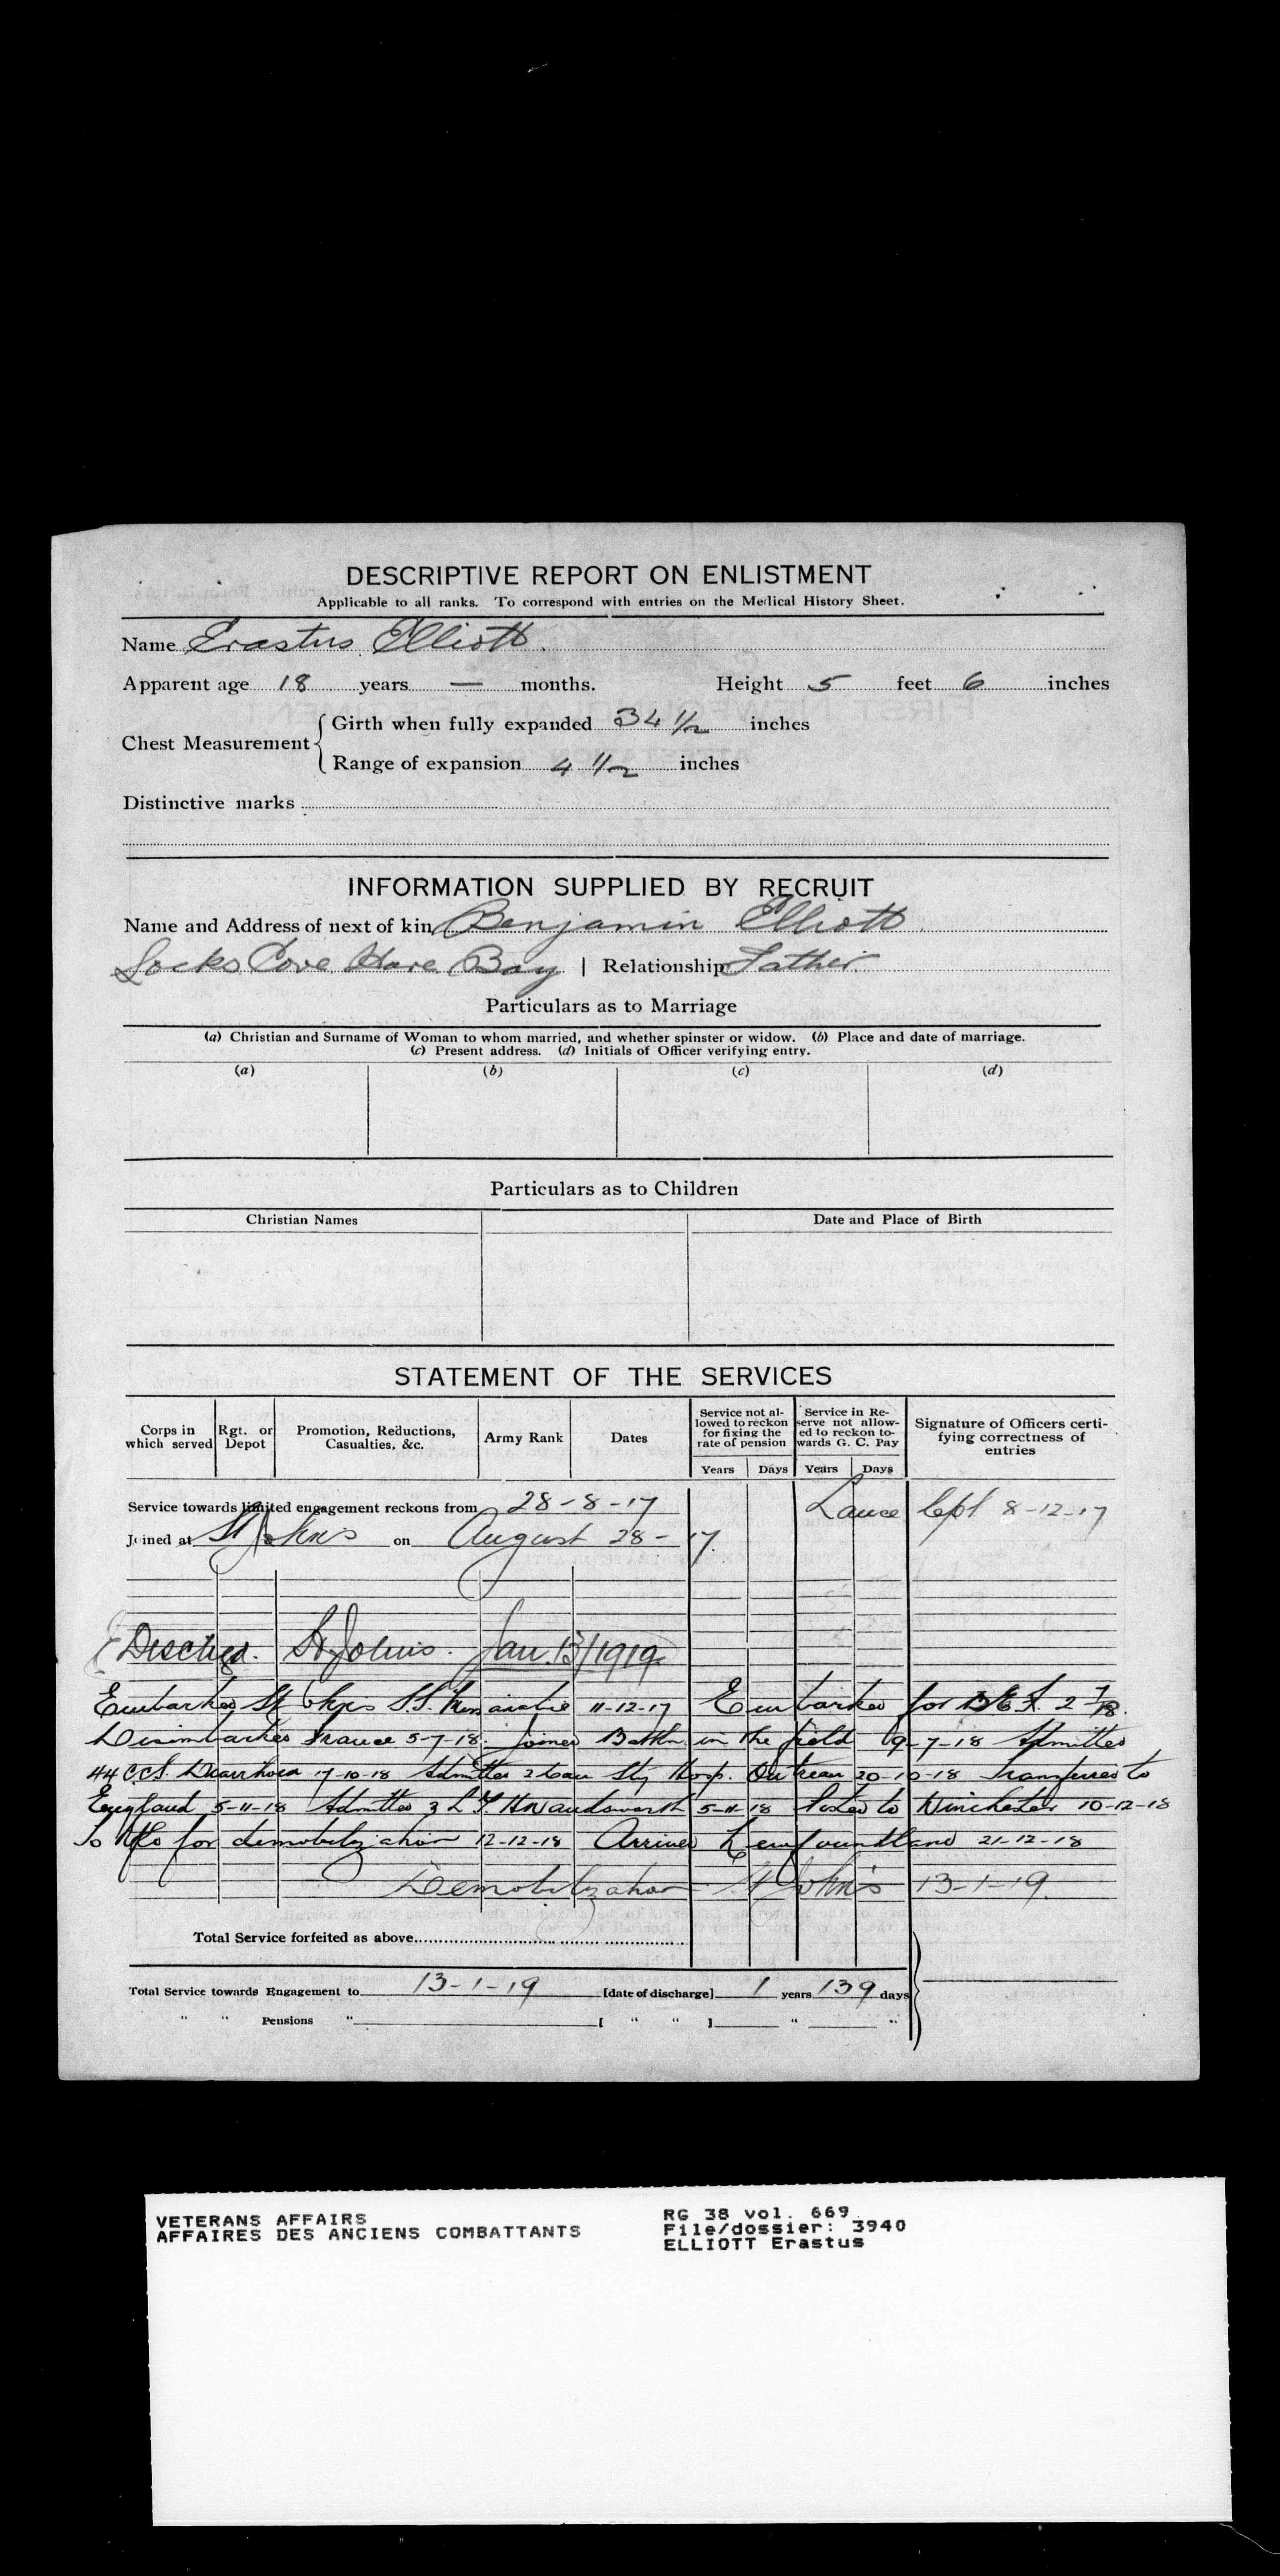 DESCRIPTIVE REPORT ON ENLISTMENT
Applicable to all ranks. To correspond with entries on the Medical History Sheet.
Name Erastus Elliott.
Apparent age 18 years — months. Height 5 feet 6 inches
Chest Measurement { Girth when fully expanded 34 1/2 inches
Range of expansion 4 1/2 inches
Distinctive marks
INFORMATION SUPPLIED BY RECRUIT
Name and Address of next of kin Benjamin Elliott.
Locks Cove Hare Bay | Relationship Father.
Particulars as to Marriage
(a) Christian and Surname of Woman to whom married, and whether spinster or widow. (b) Place and date of marriage.
(c) Present address. (d) Initials of Officer verifying entry.
(a) (b) (c) (d)
Particulars as to Children
Christian Names Date and Place of Birth
STATEMENT OF THE SERVICES
Corps in which served Rgt. or Depot Promotion, Reductions, Casualties, &c. Army Rank Dates Service not allowed to reckon for fixing the rate of pension Service in Reserve not allowed to reckon towards G. C. Pay Signature of Officers certifying correctness of entries
Years Days Years Days
Service towards limited engagement reckons from 28-8-17 Lance Cpl 8-12-17
Joined at St Johns on August 28-17.
Dischgd. St Johns. Jan. 13/1919
Embarked St Johns S.S. 11-12-17 Embarked for B.E.F. 2-7-18.
Disembarked France 5-7-18. Joined Battn in the field 9-7-18 Admitted
44 C.C.S. Diarrhoea 17-10-18 Admitted 2 Can Sty Hosp. Outreau 20-10-18 Transferred to
England 5-11-18 Admitted 3 L.G.H Wandsworth 5-11-18 to Winchester 10-12-18
To Nfld for demobilization 12-12-18 Arrived Newfoundland 21-12-18
Demobilization St John's 13-1-19.
Total Service forfeited as above
Total Service towards Engagement to 13-1-19 [date of discharge] 1 years 139 days
" " Pensions " [ " " ] " "
VETERANS AFFAIRS RG 38 vol. 669
AFFAIRES DES ANCIENS COMBATTANTS File/dossier: 3940
ELLIOTT Erastus